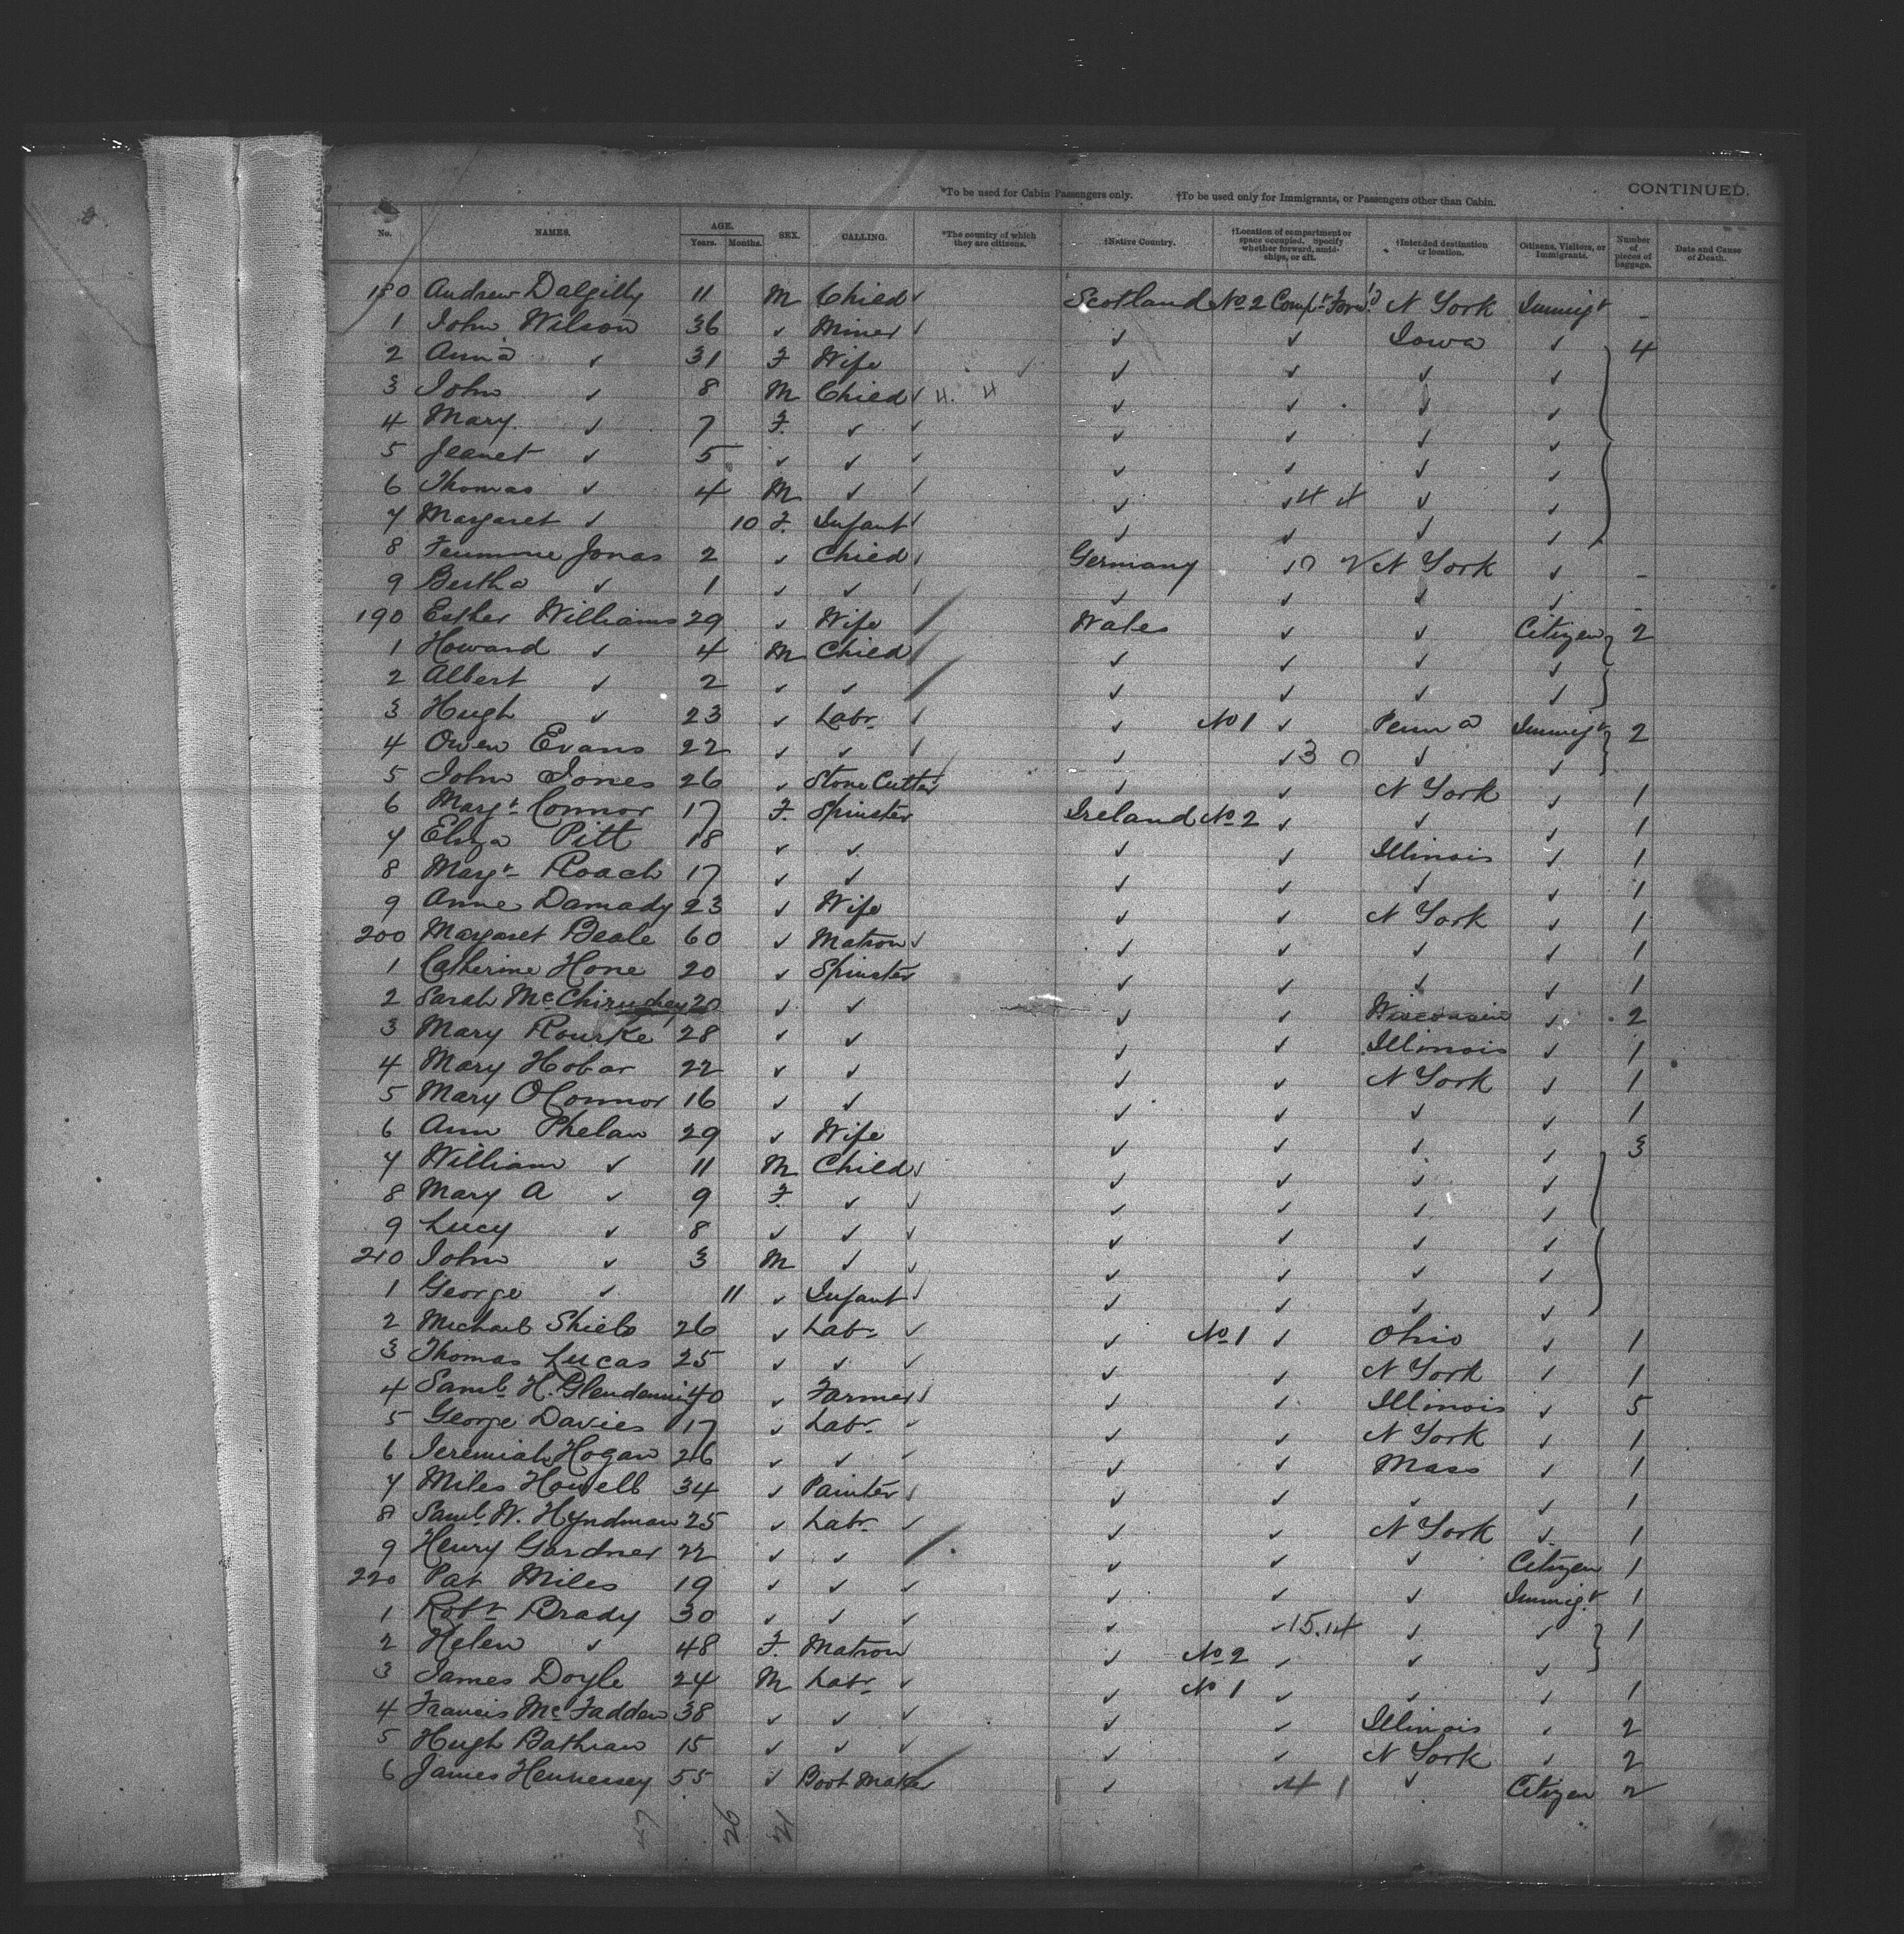 CONTINUED.
*To be used for Cabin Passengers only. †To be used only for Immigrants, or Passengers other than Cabin.
No. NAMES. AGE. Years. Months. SEX. CALLING. *The country of which they are citizens. †Native Country. †Location of compartment or space occupied. Specify whether forward, amidships, or aft. †Intended destination or location. Citizens, Visitors, or Immigrants. Number of pieces of baggage. Date and Cause of Death.
180 Andrew Dalgilly 11 M Child ✓ Scotland No 2 Compt Forwd N York Immigt -
1 John Wilson 36 ✓ Miner ✓ ✓ ✓ Iowa ✓ 4
2 Anna ✓ 31 F Wife ✓ ✓ ✓ ✓
3 John ✓ 8 M Child ✓ 4. 4 ✓ ✓ ✓ ✓
4 Mary ✓ 7 F. ✓ ✓ ✓ ✓ ✓ ✓
5 Jeanet ✓ 5 ✓ ✓ ✓ ✓ ✓ ✓ ✓
6 Thomas ✓ 4 M ✓ ✓ ✓ ✓ 4 4 ✓ ✓
7 Margaret ✓ 10 F. Infant ✓ ✓ ✓ ✓ ✓
8 Jonas 2 ✓ Child ✓ Germany ✓ 0 2 N York ✓ -
9 Bertha ✓ 1 ✓ ✓ ✓ ✓ ✓ ✓ ✓ -
190 Esther Williams 29 ✓ Wife Wales ✓ ✓ Citizen 2
1 Howard ✓ 4 M Child ✓ ✓ ✓ ✓
2 Albert ✓ 2 ✓ ✓ ✓ ✓ ✓ ✓
3 Hugh ✓ 23 ✓ Labr ✓ ✓ No 1 ✓ Penna Immigt 2
4 Owen Evans 22 ✓ ✓ ✓ ✓ ✓ 3 0 ✓ ✓
5 John Jones 26 ✓ Stone Cutter ✓ ✓ N York ✓ 1
6 Margt Connor 17 F. Spinster Ireland No 2 ✓ ✓ ✓ 1
7 Eliza Pitt 18 ✓ ✓ ✓ ✓ Illinois ✓ 1
8 Margt Roach 17 ✓ ✓ ✓ ✓ ✓ ✓ 1
9 Anne Damady 23 ✓ Wife ✓ ✓ N York ✓ 1
200 Margaret Beale 60 ✓ Matron ✓ ✓ ✓ ✓ ✓ 1
1 Catherine Hone 20 ✓ Spinster ✓ ✓ ✓ ✓ 1
2 Sarah 20 ✓ ✓ ✓ ✓ Wisconsin ✓ 2
3 Mary Rourke 28 ✓ ✓ ✓ ✓ Illinois ✓ 1
4 Mary Hobar 22 ✓ ✓ ✓ ✓ N York ✓ 1
5 Mary OConnor 16 ✓ ✓ ✓ ✓ ✓ ✓ 1
6 Ann Phelan 29 ✓ Wife ✓ ✓ ✓ ✓ 3
7 William ✓ 11 M Child ✓ ✓ ✓ ✓ ✓
8 Mary A ✓ 9 F. ✓ ✓ ✓ ✓ ✓ ✓
9 Lucy ✓ 8 ✓ ✓ ✓ ✓ ✓ ✓ ✓
210 John ✓ 3 M ✓ ✓ ✓ ✓ ✓ ✓
1 George ✓ 11 ✓ Infant ✓ ✓ ✓ ✓ ✓
2 Michael Shiels 26 ✓ Labr ✓ ✓ No 1 ✓ Ohio ✓ 1
3 Thomas Lucas 25 ✓ ✓ ✓ ✓ ✓ N York ✓ 1
4 Saml H. Glendenning 40 ✓ Farmer ✓ ✓ ✓ Illinois ✓ 5
5 George Davies 17 ✓ Labr ✓ ✓ ✓ N York ✓ 1
6 Jeremiah Hogan 26 ✓ ✓ ✓ ✓ ✓ Mass ✓ 1
7 Miles Howell 34 ✓ Painter ✓ ✓ ✓ ✓ ✓ 1
8 Saml W. Hyndman 25 ✓ Labr ✓ ✓ ✓ N York ✓ 1
9 Henry Gardner 22 ✓ ✓ ✓ ✓ ✓ Citizen 1
220 Pat Miles 19 ✓ ✓ ✓ ✓ ✓ ✓ Immigt 1
1 Robt Brady 30 ✓ ✓ ✓ ✓ ✓ 15.14 ✓ ✓ 1
2 Helen ✓ 48 F. Matron ✓ No 2 ✓ ✓ ✓
3 James Doyle 24 M Labr ✓ ✓ No 1 ✓ ✓ ✓ 1
4 Francis McFadden 38 ✓ ✓ ✓ ✓ ✓ Illinois ✓ 2
5 Hugh 15 ✓ ✓ ✓ ✓ ✓ N York ✓ 2
6 James Hennessey 55 ✓ Boot Maker ✓ 4 1 ✓ Citizen 2